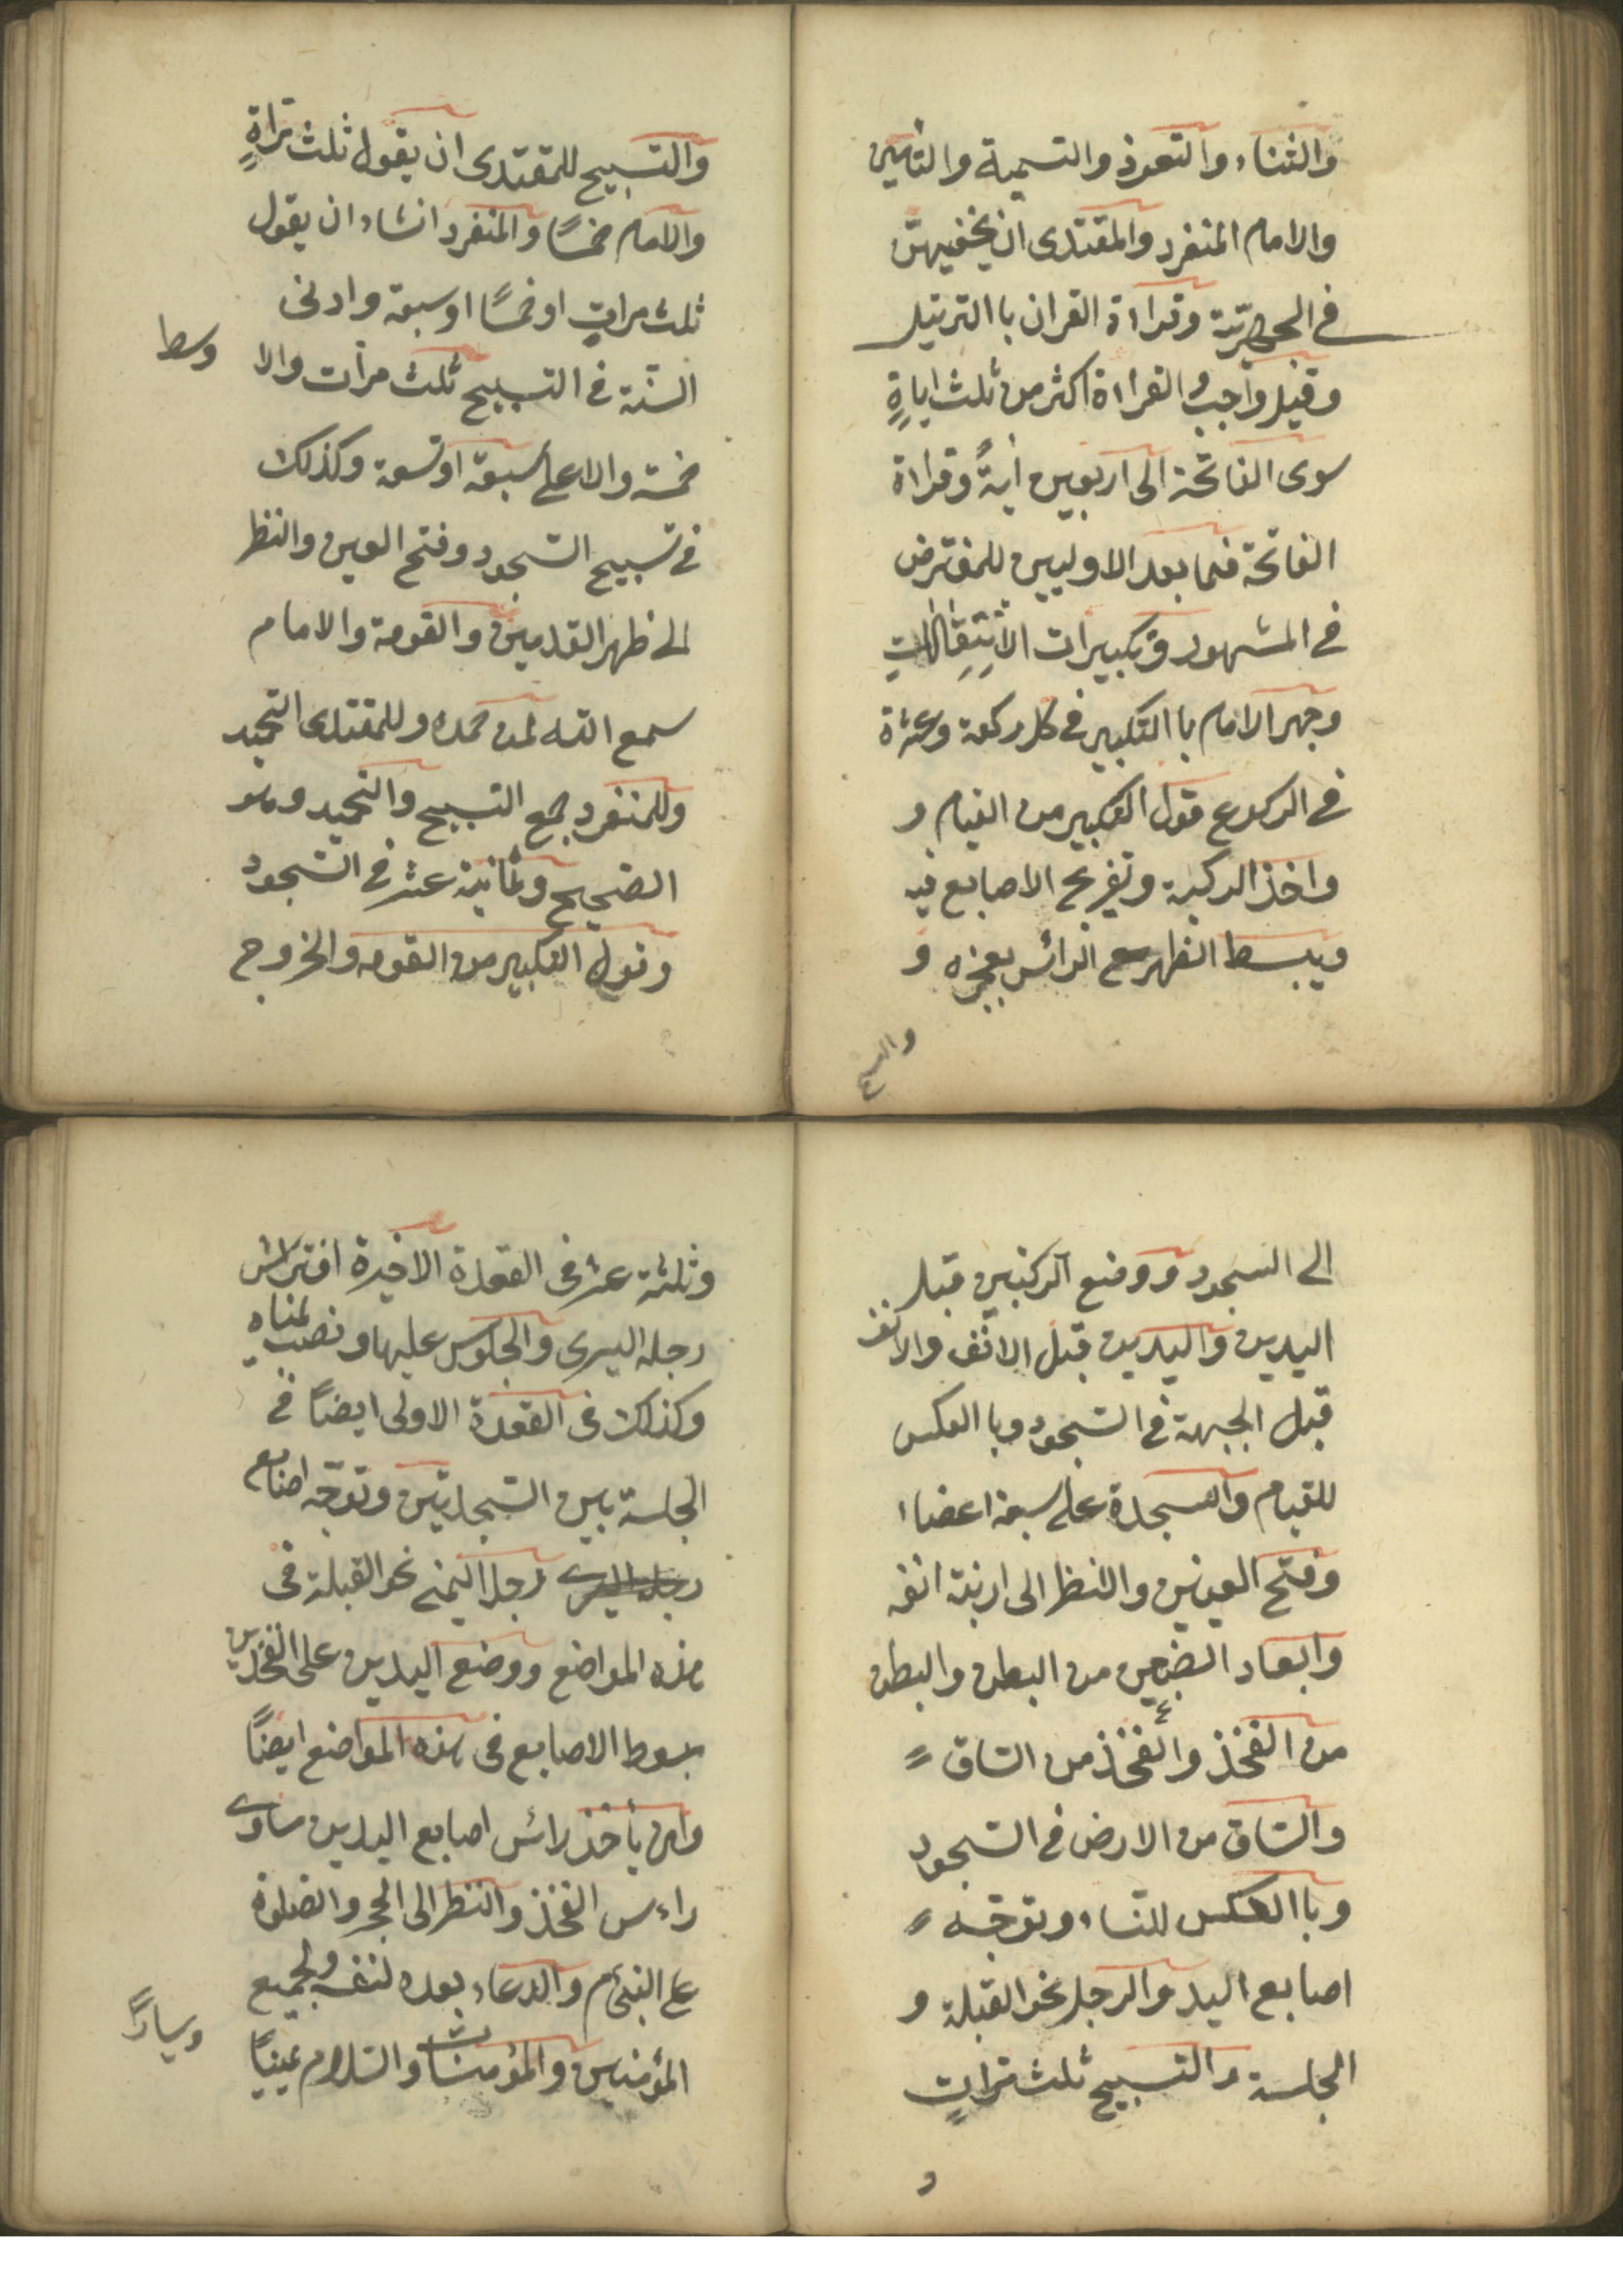 والثناء والتعوذ والتسمية والتأمين
والامام المنفرد والمقتدى ان يخفيهنّ
في الجهريّة وقراءة القران با الترتيل
وقيل واجبٌ القراءة اكثر من ثلث اياةٍ
سوى الفاتحة الى اربعين أيةً وقراءة
الفاتحة فيما بعد الاوليين للمفترض
في المشهور وتكبيرات الانتقالات
وجهر الامام با التكبير في كل ركعة وعشرة
في الركوع قول التكبير من القيام و
واخذ الركبة وتفريج الاصابع فيه
ويبسط الظهر مع الرائس بعجزه و
والتسبيح
والتسبيح للمقتدى ان يقول ثلث مراةٍ
والامام خمسًا والمنفرد انشاء ان يقول
ثلث مراتٍ او خمسًا او سبعة وادنى
السنّة في التسبيح ثلث مرات والا
وسط
خمسة والاعلى سبعة او تسعة وكذلك
في تسبيح السّجود وفتح العين والنظر
الى ظهر القدمين والقومة والامام
سمع الله لمن حمده وللمقتدى التحميد
وللمنفرد جمع التسبيح والتحميد وهو
الصّحيح وثمانية عشر في السّجود
وقول التكبير من القومه والخروج
الى السجود ووضع الركبتين قبل
اليدين واليدين قبل الانف والانف
قبل الجبهة في السّجود وبا العكس
للقيام والسجدة على سبعة اعضاا
وفتح العينين والنظر الى اربنة انفه
وابعاد الضبعين من البطن والبطن
من الفخذ والفخذ من السّاق
والسّاق من الارض في السّجود
وبا العكس للنّساء وتوجّه
اصابع اليد والرجل نحو القبلة و
الجلسة والتسبيح ثلث مراتٍ
و
وثلثة عشر فى القعدة الاخيرة افتراش
رجله اليسرى والجلوس عليها ونصب يمناه
وكذلك فى القعدة الاولى ايضاً في
الجلسة بين السّجدتين وتوجّه اصابع
رجله اليسرى رجل اليمنى نحو القبلة فى
هذه المواضع ووضع اليدين على الفخذين
بسوط الاصابع فى هذه المواضع ايضاً
وان يأخذ رائس اصابع اليدين ساوى
راءس الفخذ والنظر الى الحجر والصلوة
على النبى م والدعاء بعده لنفسه ولجميع
المؤمنين والمؤمنات والسّلام يميناً
ويساراً